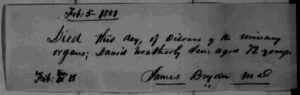 Feb: 5 - 1858
Died this day, of Disease of the urinary
organs; David Weatherly Sen: aged 72 years.
Feb: 15 James Bryan M D